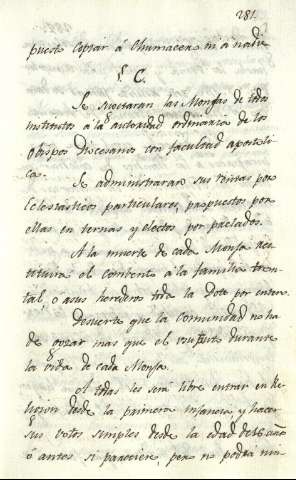 281.
puesto copiar á Chumacero ni á nadie
§ C.
Se sugetaran las Monjas de todos
institutos á la autoridad ordinaria de los
Obispos Diocesanos con facultad apostoli-
ca.
Se administraran sus rentas por
Eclesiásticos particulares, propuestos por
ellas en ternas y electos por prelados.
A la muerte de cada Monja res-
tituira el combento á la familia
ó a sus herederos toda la Dote por entero.
Desuerte que la comunidad no ha
de gozar mas que el usufruto durante
la vida de cada Monja.
A todas les será libre entrar en Re-
ligion desde la primera infancia, y hacer
sus votos simples desde la edad de 16 años
ó antes si pareciere, pero no podrá